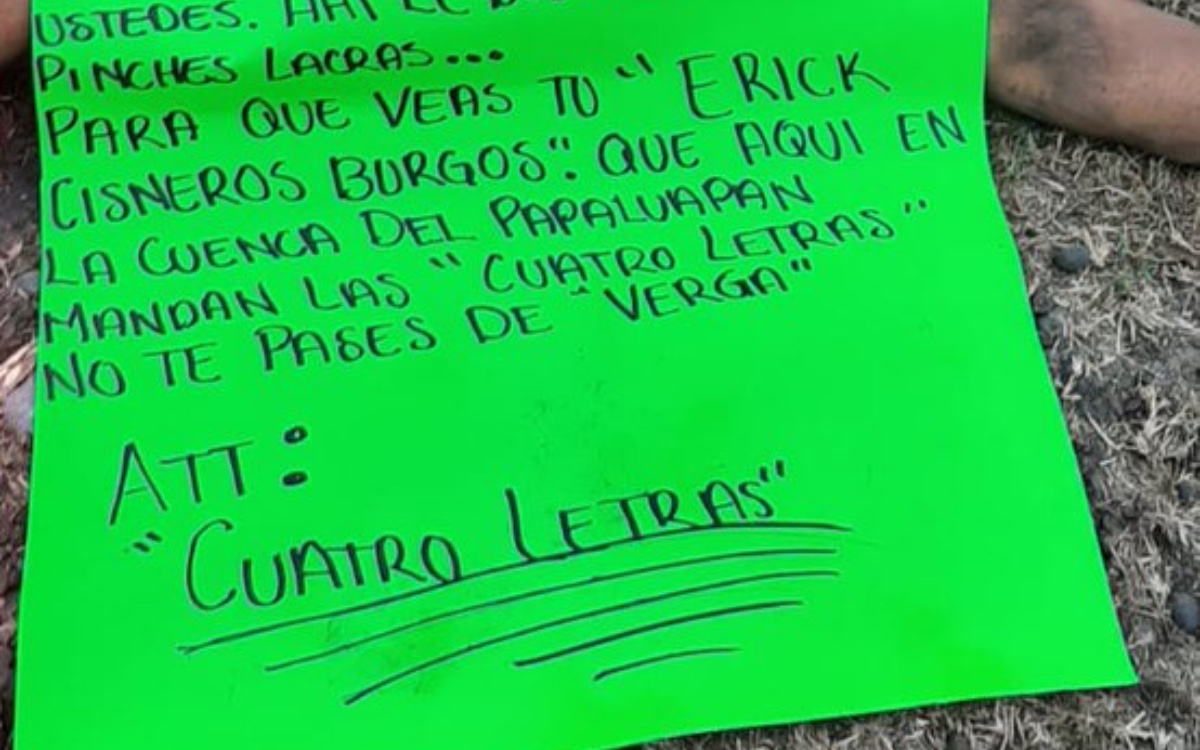 USTEDES. AHI LE
PINCHES LACRAS...
PARA QUE VEAS TU "ERICK
CISNEROS BURGOS". QUE AQUI EN
LA CUENCA DEL PAPALUAPAN
MANDAN LAS "CUATRO LETRAS"
NO TE PASES DE "VERGA"
ATT:
"CUATRO LETRAS"